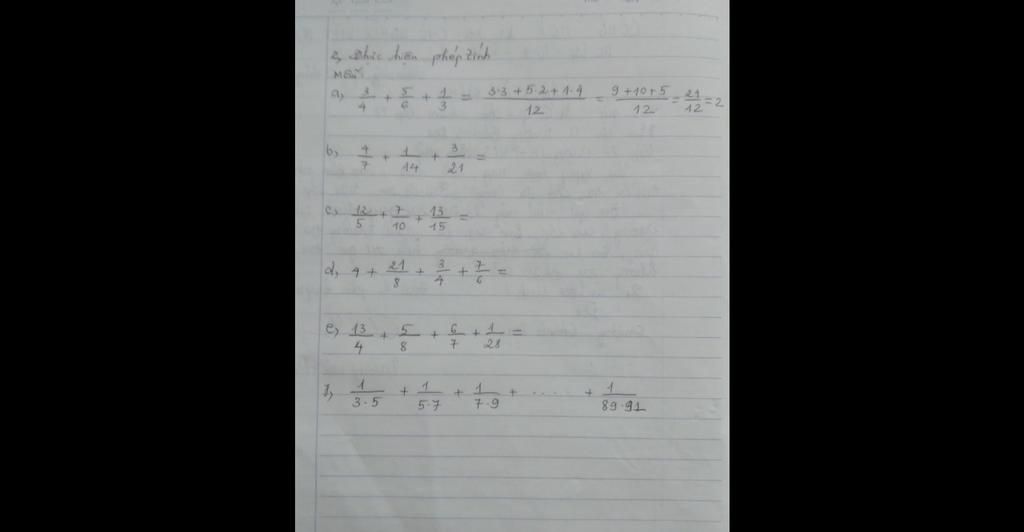 2, Thực hiện phép tính
Mẫu
a, 3/4 + 5/6 + 1/3 = (3·3 + 5·2 + 1·4)/12 = (9+10+5)/12 = 21/12 = 2
b, 4/7 + 1/14 + 3/21 =
c, 12/5 + 7/10 + 13/15 =
d, 4 + 21/8 + 3/4 + 7/6 =
e, 13/4 + 5/8 + 6/7 + 1/28 =
f, 1/(3·5) + 1/(5·7) + 1/(7·9) + ..... + 1/(89·91)